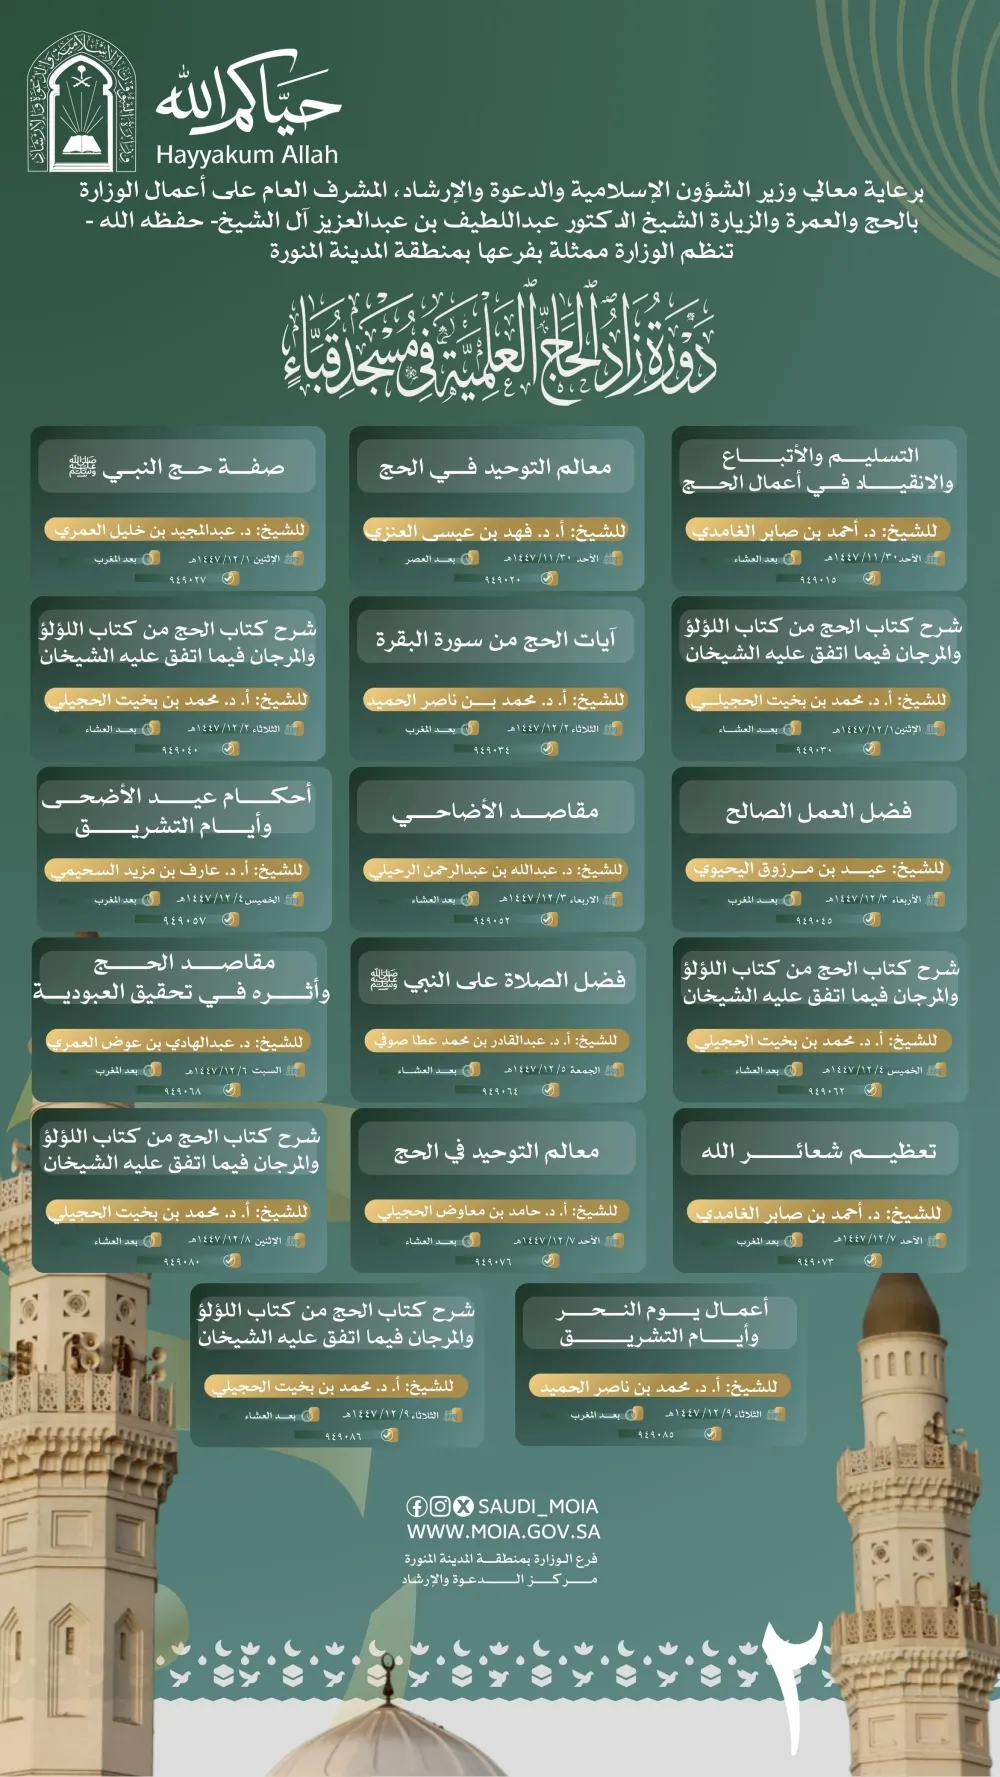 حيّاكم الله
Hayyakum Allah
برعاية معالي وزير الشؤون الإسلامية والدعوة والإرشاد، المشرف العام على أعمال الوزارة
بالحج والعمرة والزيارة الشيخ الدكتور عبداللطيف بن عبدالعزيز آل الشيخ- حفظه الله -
تنظم الوزارة ممثلة بفرعها بمنطقة المدينة المنورة
دورة زاد الحاج العلمية في مسجد قباء
التسليم والأتباع
والانقياد في أعمال الحج
للشيخ: د. أحمد بن صابر الغامدي
الأحد ١٤٤٧/١١/٣٠هـ
بعد العشاء
٩٤٩٠١٥
معالم التوحيد في الحج
للشيخ: أ. د. فهد بن عيسى العنزي
الأحد ١٤٤٧/١١/٣٠هـ
بعد العصر
٩٤٩٠٢٠
صفة حج النبي ﷺ
للشيخ: د. عبدالمجيد بن خليل العمري
الإثنين ١٤٤٧/١٢/١هـ
بعد المغرب
٩٤٩٠٢٧
شرح كتاب الحج من كتاب اللؤلؤ
والمرجان فيما اتفق عليه الشيخان
للشيخ: أ. د. محمد بن بخيت الحجيلي
الإثنين ١٤٤٧/١٢/١هـ
بعد العشاء
٩٤٩٠٣٠
آيات الحج من سورة البقرة
للشيخ: أ. د. محمد بن ناصر الحميد
الثلاثاء ١٤٤٧/١٢/٢هـ
بعد المغرب
٩٤٩٠٣٤
شرح كتاب الحج من كتاب اللؤلؤ
والمرجان فيما اتفق عليه الشيخان
للشيخ: أ. د. محمد بن بخيت الحجيلي
الثلاثاء ١٤٤٧/١٢/٢هـ
بعد العشاء
٩٤٩٠٤٠
فضل العمل الصالح
للشيخ: عيد بن مرزوق اليحيوي
الأربعاء ١٤٤٧/١٢/٣هـ
بعد المغرب
٩٤٩٠٤٥
مقاصد الأضاحي
للشيخ: د. عبدالله بن عبدالرحمن الرحيلي
الاربعاء ١٤٤٧/١٢/٣هـ
بعد العشاء
٩٤٩٠٥٢
أحكام عيد الأضحى
وأيام التشريق
للشيخ: أ. د. عارف بن مزيد السحيمي
الخميس ١٤٤٧/١٢/٤هـ
بعد المغرب
٩٤٩٠٥٧
شرح كتاب الحج من كتاب اللؤلؤ
والمرجان فيما اتفق عليه الشيخان
للشيخ: أ. د. محمد بن بخيت الحجيلي
الخميس ١٤٤٧/١٢/٤هـ
بعد العشاء
٩٤٩٠٦٢
فضل الصلاة على النبي ﷺ
للشيخ: أ. د. عبدالقادر بن محمد عطا صوفي
الجمعة ١٤٤٧/١٢/٥هـ
بعد العشاء
٩٤٩٠٦٤
مقاصد الحج
وأثره في تحقيق العبودية
للشيخ: د. عبدالهادي بن عوض العمري
السبت ١٤٤٧/١٢/٦هـ
بعد المغرب
٩٤٩٠٦٨
تعظيم شعائر الله
للشيخ: د. أحمد بن صابر الغامدي
الأحد ١٤٤٧/١٢/٧هـ
بعد المغرب
٩٤٩٠٧٣
معالم التوحيد في الحج
للشيخ: أ. د. حامد بن معاوض الحجيلي
الأحد ١٤٤٧/١٢/٧هـ
بعد العشاء
٩٤٩٠٧٦
شرح كتاب الحج من كتاب اللؤلؤ
والمرجان فيما اتفق عليه الشيخان
للشيخ: أ. د. محمد بن بخيت الحجيلي
الإثنين ١٤٤٧/١٢/٨هـ
بعد العشاء
٩٤٩٠٨٠
أعمال يوم النحر
وأيام التشريق
للشيخ: أ. د. محمد بن ناصر الحميد
الثلاثاء ١٤٤٧/١٢/٩هـ
بعد المغرب
٩٤٩٠٨٥
شرح كتاب الحج من كتاب اللؤلؤ
والمرجان فيما اتفق عليه الشيخان
للشيخ: أ. د. محمد بن بخيت الحجيلي
الثلاثاء ١٤٤٧/١٢/٩هـ
بعد العشاء
٩٤٩٠٨٦
SAUDI_MOIA
WWW.MOIA.GOV.SA
فرع الوزارة بمنطقة المدينة المنورة
مركز الدعوة والإرشاد
٢